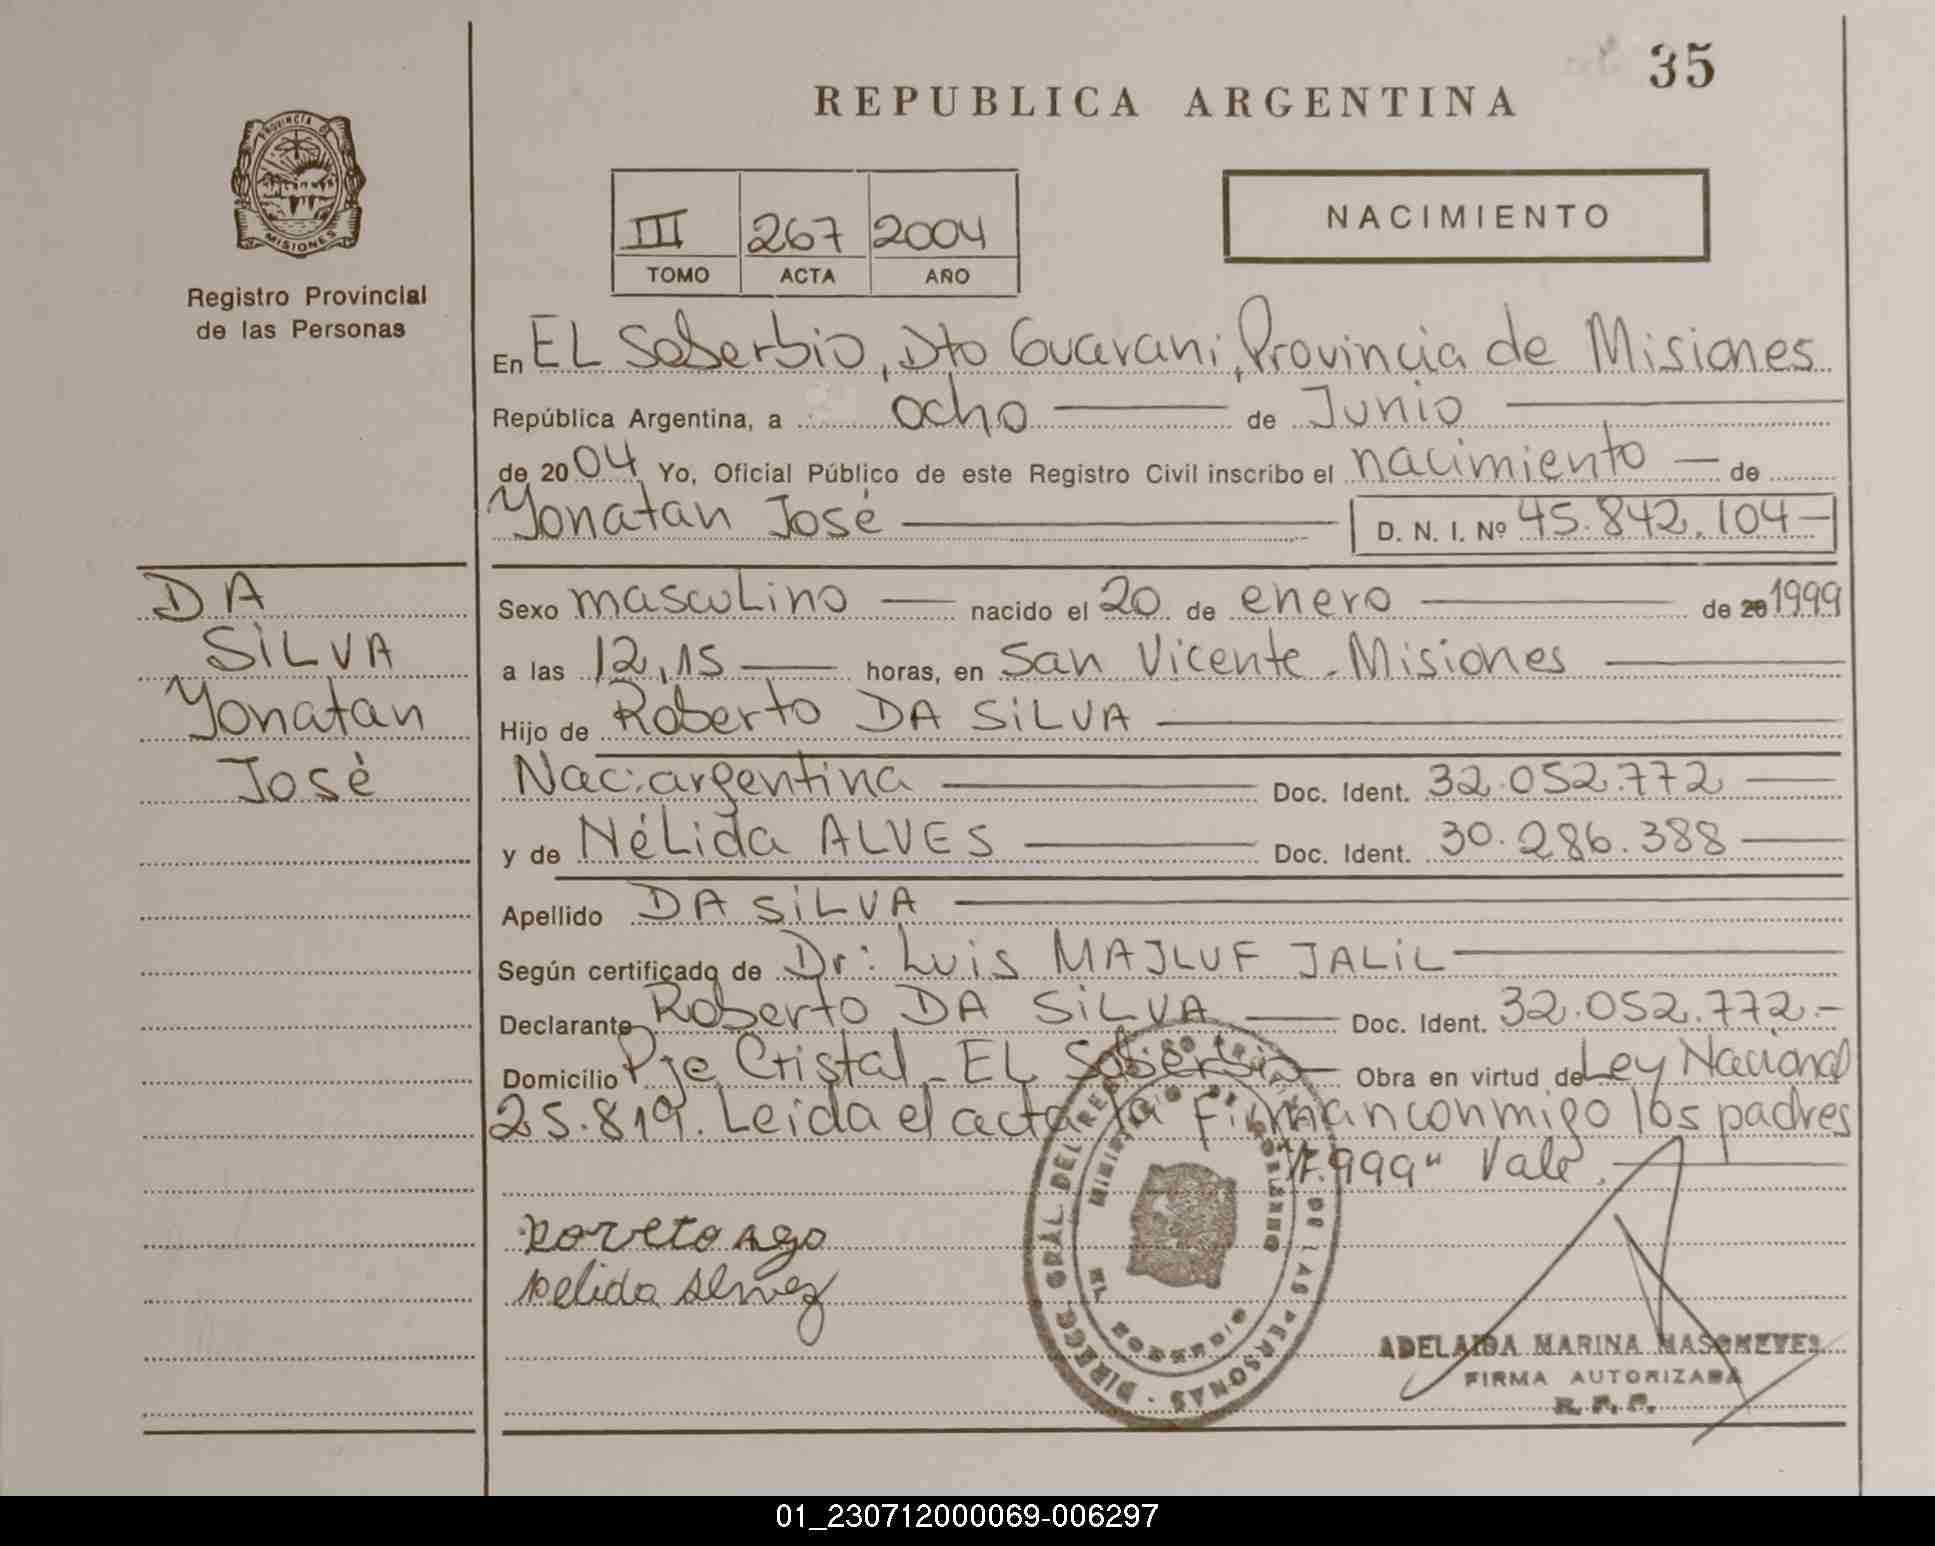 35
REPUBLICA ARGENTINA
PROVINCIA DE
MISIONES
Registro Provincial
de las Personas
III 267 2004
TOMO ACTA AÑO
NACIMIENTO
En EL Soberbio, Dto Guarani, Provincia de Misiones
República Argentina, a ocho de Junio
de 2004 Yo, Oficial Público de este Registro Civil inscribo el nacimiento de
Yonatan José D. N. I. Nº 45.842.104
DA
SILVA
Yonatan
José
Sexo masculino nacido el 20 de enero de 20 1999
a las 12,15 horas, en San Vicente - Misiones
Hijo de Roberto DA SILVA
Nac: argentina Doc. Ident. 32.052.772
y de NéLida ALVES Doc. Ident. 30.286.388
Apellido DA SILVA
Según certificado de Dr: Luis MAJLUF JALIL
Declarante Roberto DA SILVA Doc. Ident. 32.052.772.-
Domicilio Pje Cristal - EL Soberbio Obra en virtud de Ley Nacional
25.819. Leida el acta la firman conmigo los padres
"1.999" Vale.
DIRECC. GRAL. DEL REGISTRO PROV. DE LAS PERSONAS
MINISTERIO DE GOBIERNO
EL SOBERBIO
ADELAIDA MARINA
FIRMA AUTORIZADA
R. P. P.
01_230712000069-006297